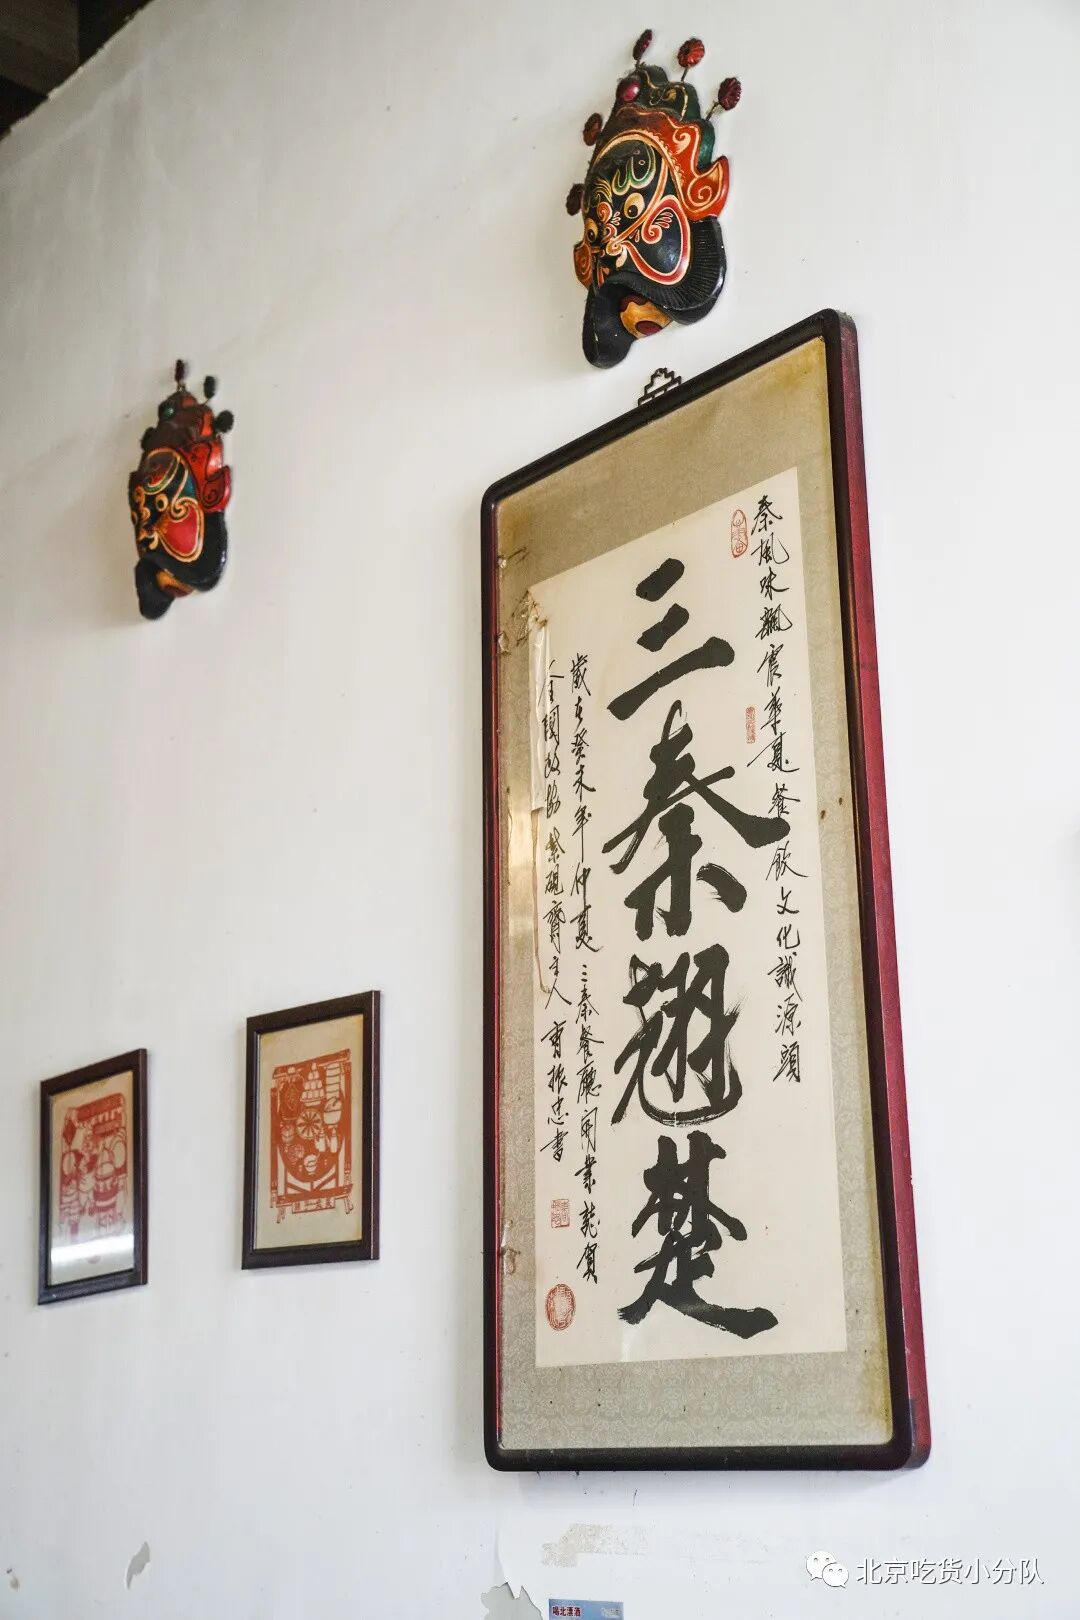 秦風味飄震華夏餐飲文化誠源頭
三秦翹楚
歲在癸未年仲夏三秦餐廳開業誌賀
全國政協紫硯齋主人曹振忠書
喝北漂酒
北京吃货小分队